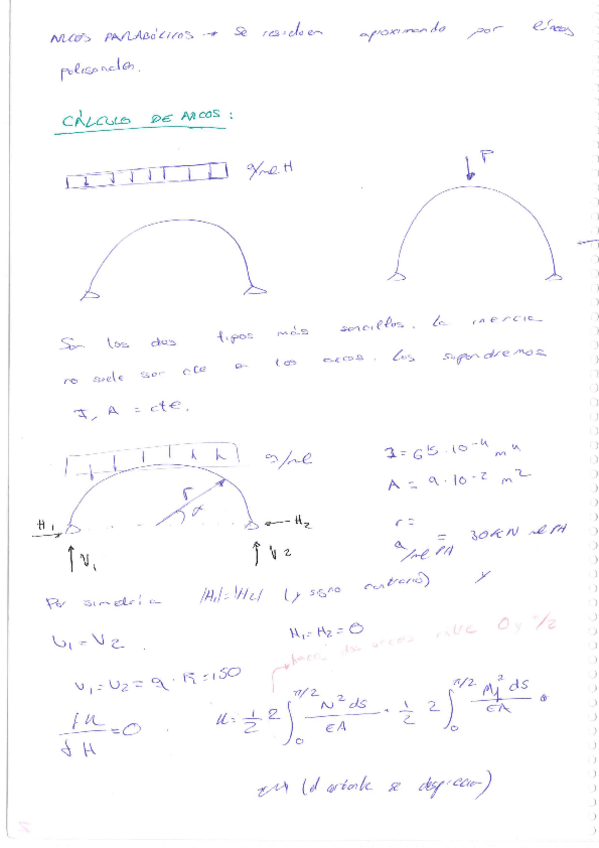 ARCOS PARABÓLICOS → Se resuelven aproximando por líneas
poligonales.
CÁLCULO DE ARCOS:
q/ml H
P
Son los dos tipos más sencillos. La inercia
no suele ser cte en los arcos. Los supondremos
I, A = cte.
q/ml
I = 6'5·10⁻⁴ m⁴
A = 9·10⁻² m²
r
α
r =
H₁
H₂
q/ml PH = 30KN ml PH
V₁
V₂
Por simetría |H₁|=|H₂| (y signo contrario) y
V₁=V₂
H₁-H₂=0
0 y π/2
V₁=V₂= q·R=150
δU/δH=0
U= 1/2 2 ∫₀^π/2 N² ds/EA + 1/2 2 ∫₀^π/2 M_f² ds/EA
(el cortante se desprecia)
2